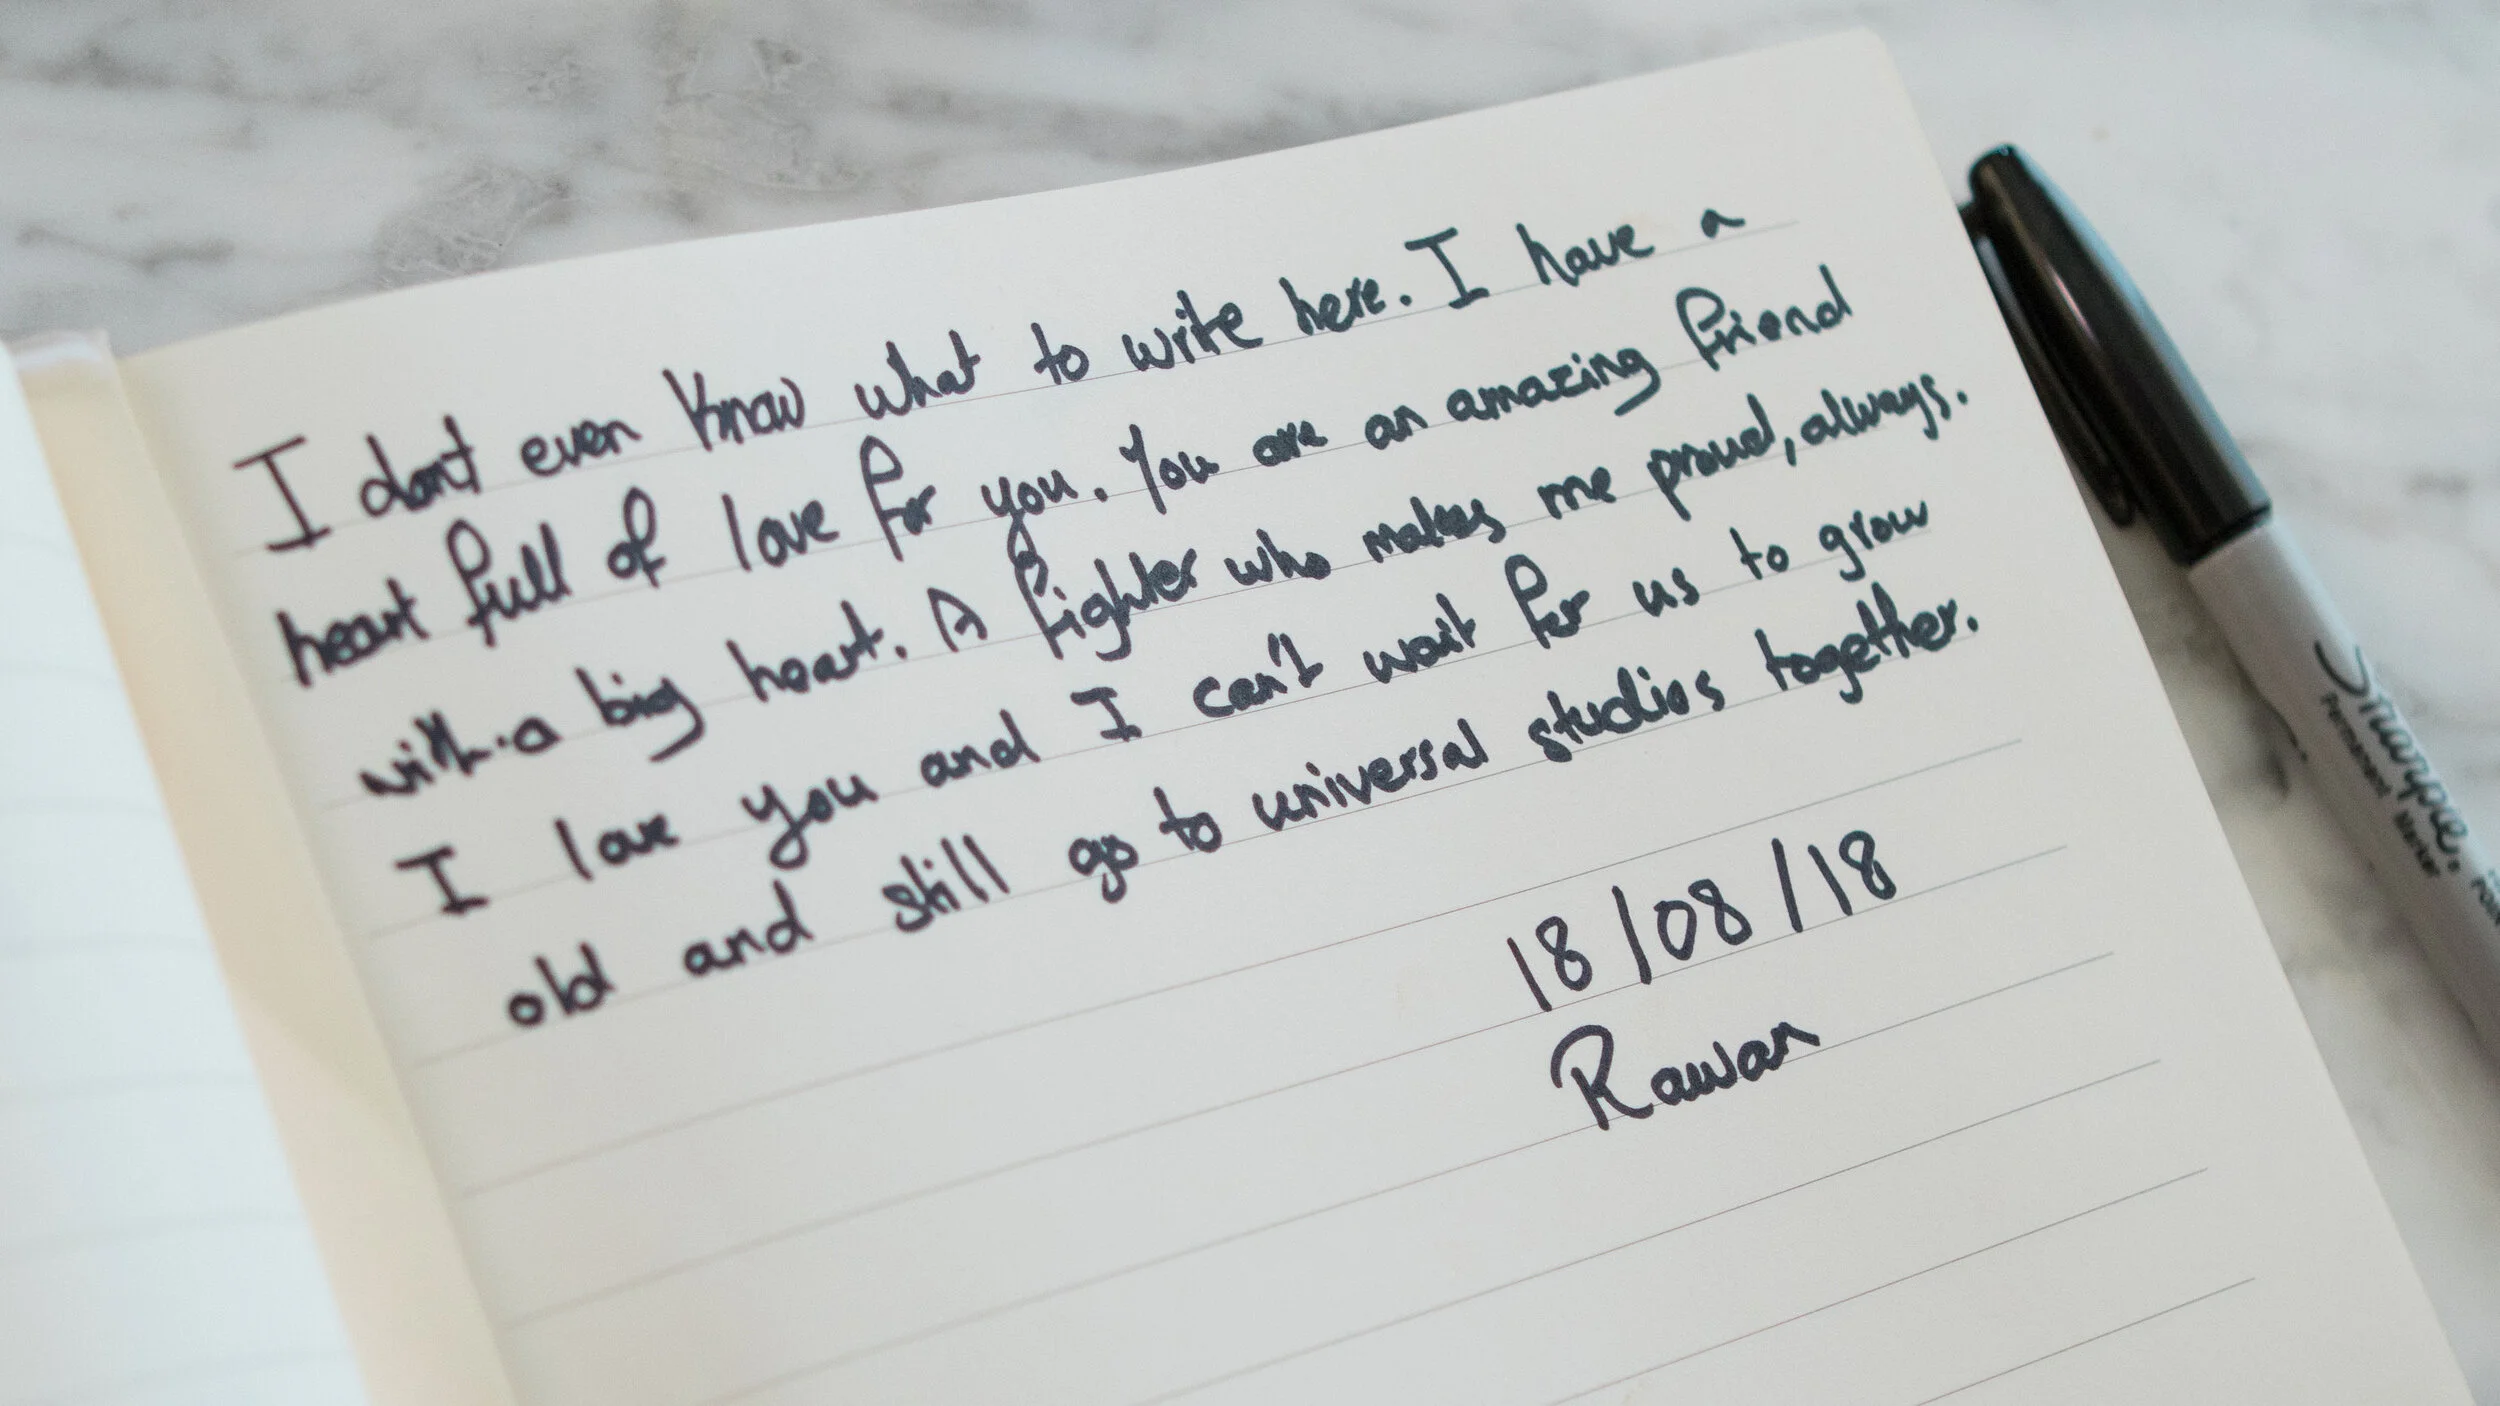 I dont even know what to write here. I have a
heart full of love for you. You are an amazing friend
with a big heart. A fighter who makes me proud, always.
I love you and I can't wait for us to grow
old and still go to universal studios together.
18/08/18
Rawan
Sharpie
Permanent Marker